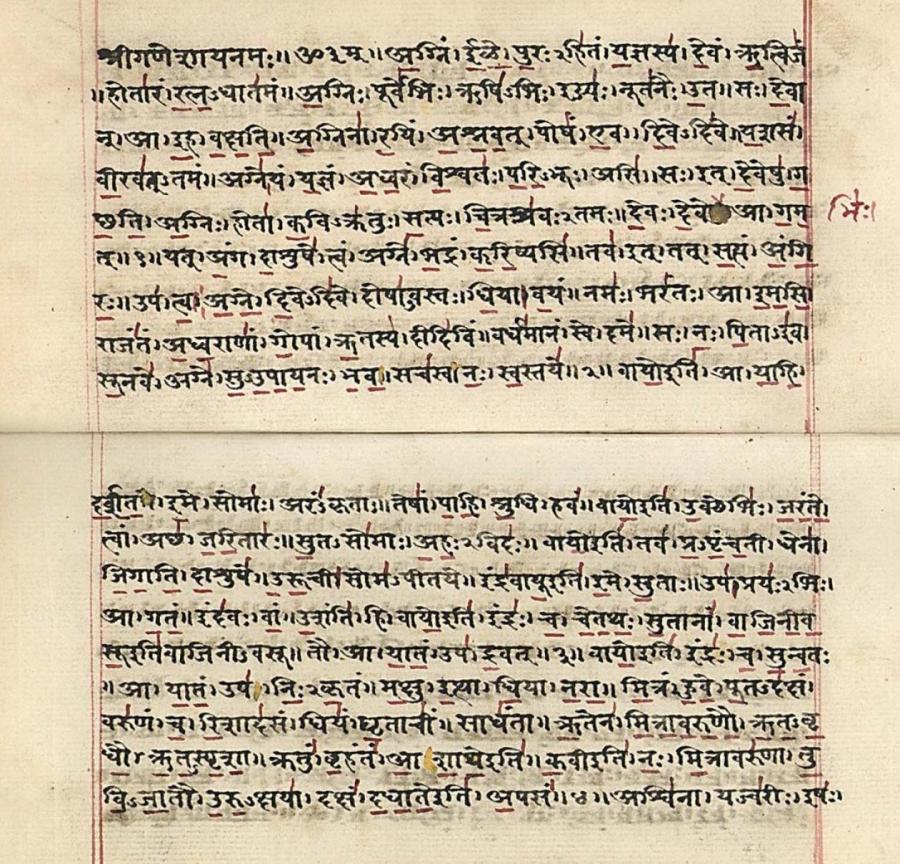 श्रीगणेशायनमः॥ॐ३म्॥अग्निं।ईळे।पुरःऽहितं।यज्ञस्य।देवं।ऋत्विजं
॥होतारं।रत्नऽधातमं॥अग्निः।पूर्वेभिः।ऋषिऽभिः।ईड्यः।नूतनैः।उत॥सः।देवा
न्।आ।इह।वक्षति॥अग्निना।रयिं।अश्नवत्।पोषं।एव।दिवेऽदिवे॥यशसं।
वीरवत्ऽतमं॥अग्ने।यं।यज्ञं।अध्वरं।विश्वतः।परिऽभूः।असि॥सः।इत्।देवेषु।ग
च्छति।अग्निः।होता।कविऽक्रतुः।सत्यः।चित्रश्रवःऽतमः॥देवः।देवे आ।गम भिः।
त्॥१॥यत्।अंग।दाशुषे।त्वं।अग्ने।भद्रं।करिष्यसि॥तव।इत्।तत्।सत्यं।अंगि
रः॥उप।त्वा।अग्ने।दिवेऽदिवे।दोषाऽवस्तः।धिया।वयं॥नमः।भरंतः।आ।इमसि
राजंतं।अध्वराणां।गोपां।ऋतस्य।दीदिविं॥वर्धमानं।स्वे।दमे॥सः।नः।पिताऽइव
सूनवे।अग्ने।सुऽउपायनः।भव॥सचस्व।नः।स्वस्तये॥२॥वायोइति।आ।याहि।
दर्शत।इमे।सोमाः।अरंऽकृताः॥तेषां।पाहि।श्रुधि।हवं॥वायोइति।उक्थेभिः।जरंते।
त्वां।अच्छ।जरितारः॥सुतऽसोमाः।अहःऽविदः॥वायोइति।तव।प्रऽपृंचती।धेना।
जिगाति।दाशुषे॥उरूची।सोमऽपीतये॥इंद्रवायूइति।इमे।सुताः॥उप।प्रयःऽभिः।
आ।गतं॥इंदवः।वां।उशंति।हि॥वायोइति।इंद्रः।च।चेतथः।सुतानां।वाजिनीव
सूइतिवाजिनीऽवसू॥तौ।आ।यातं।उप।द्रवत्॥३॥वायोइति।इंद्रः।च।सुन्वतः
॥आ।यातं।उप।निःऽकृतं॥मक्षु।इत्था।धिया।नरा॥मित्रं।हुवे।पूतऽदक्षं।
वरुणं।च।रिशादसं॥धियं।घृताचीं।साधंता॥ऋतेन।मित्रावरुणौ।ऋतऽवृ
धौ।ऋतऽस्पृशा॥क्रतुं।बृहंतं।आशाथेइति॥कवीइति।नः।मित्रावरुणा।तु
विऽजातौ।उरुऽक्षया॥दक्षं।दधातेइति।अपसं॥४॥अश्विना।यज्वरीः।इषः।